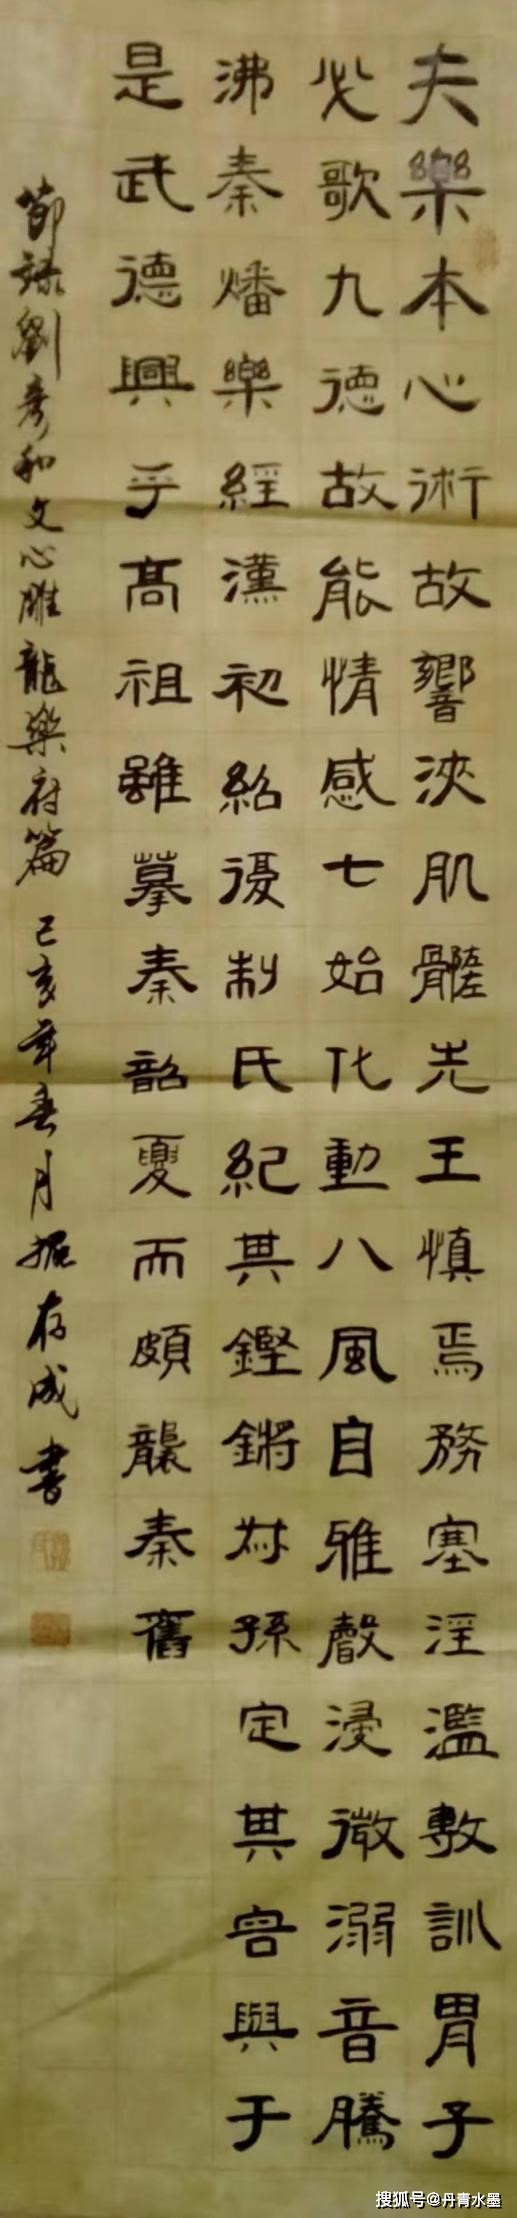 夫樂本心術故響浹肌髓先王慎焉務塞淫濫敷訓胄子
必歌九德故能情感七始化動八風自雅聲浸微溺音騰
沸秦燔樂經漢初紹復制氏紀其鏗鏘叔孫定其容與于
是武德興乎高祖雖摹秦韶夏而頗襲秦舊
節錄劉彥和文心雕龍樂府篇 己亥年春月存成書
搜狐号@丹青水墨